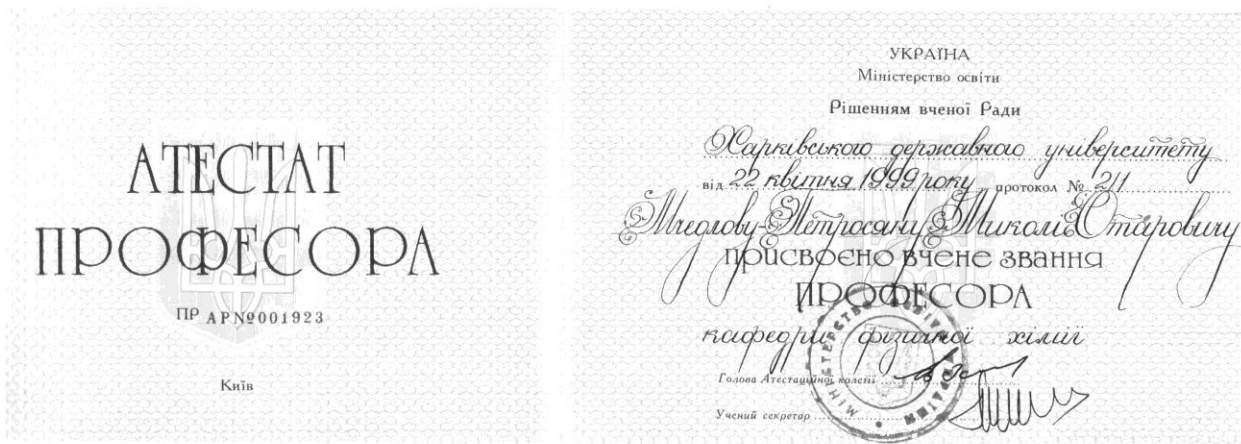 АТЕСТАТ
ПРОФЕСОРА
ПР АР№001923
Київ
УКРАЇНА
Міністерство освіти
Рішенням вченої Ради
Харківського державного університету
від 22 квітня 1999 року протокол № 2/1
Мчедлову-Петросяну Миколі Отаровичу
присвоєно вчене звання
ПРОФЕСОРА
кафедри фізичної хімії
Голова Атестаційної колегії
Учений секретар
МІНІСТЕРСТВО ОСВІТИ УКРАЇНИ